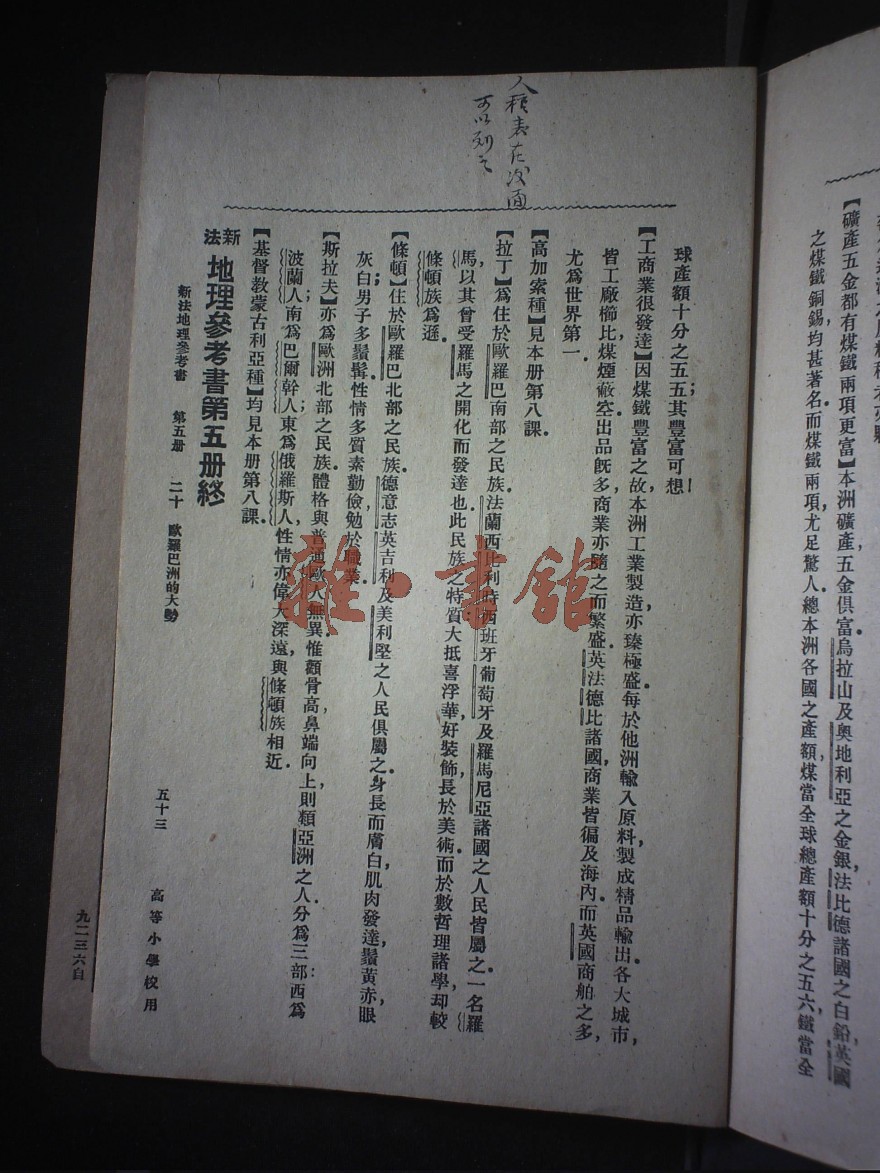 【礦產五金都有煤鐵兩項更富】本洲礦產，五金俱富。烏拉山及奧地利亞之金銀，法比德諸國之白鉛，英國
之煤鐵銅錫，均甚著名。而煤鐵兩項，尤足驚人。總本洲各國之產額，煤當全球總產額十分之五六，鐵當全
人種表在後面
可以列之
球產額十分之五五；其豐富可想！
【工商業很發達】因煤鐵豐富之故，本洲工業製造，亦臻極盛。每於他洲輸入原料，製成精品輸出。各大城市，
皆工廠櫛比，煤煙蔽空。出品旣多，商業亦隨之而繁盛。英法德比諸國，商業皆徧及海內。而英國商舶之多，
尤爲世界第一．
【高加索種】見本册第八課．
【拉丁】爲住於歐羅巴南部之民族。法蘭西比利時西班牙葡萄牙及羅馬尼亞諸國之人民皆屬之。一名羅
馬，以其曾受羅馬之開化而發達也。此民族之特質：大抵喜浮華，好裝飾，長於美術。而於數哲理諸學，却較
條頓族爲遜．
【條頓】住於歐羅巴北部之民族。德意志英吉利及美利堅之人民俱屬之。身長而膚白，肌肉發達，鬚黃赤，眼
灰白；男子多鬚髯。性情多質素勤儉，勉於職業．
【斯拉夫】亦爲歐洲北部之民族。體格與普通歐人無異，惟顴骨高，鼻端向上，則類亞洲之人。分爲三部：西爲
波蘭人；南爲巴爾幹人；東爲俄羅斯人。性情亦偉大深遠，與條頓族相近．
【基督教蒙古利亞種】均見本册第八課．
新法 地理參考書第五册終
新法地理參考書 第五册 二十 歐羅巴洲的大勢 五十三 高等小學校用
九二三六自
雜·書館